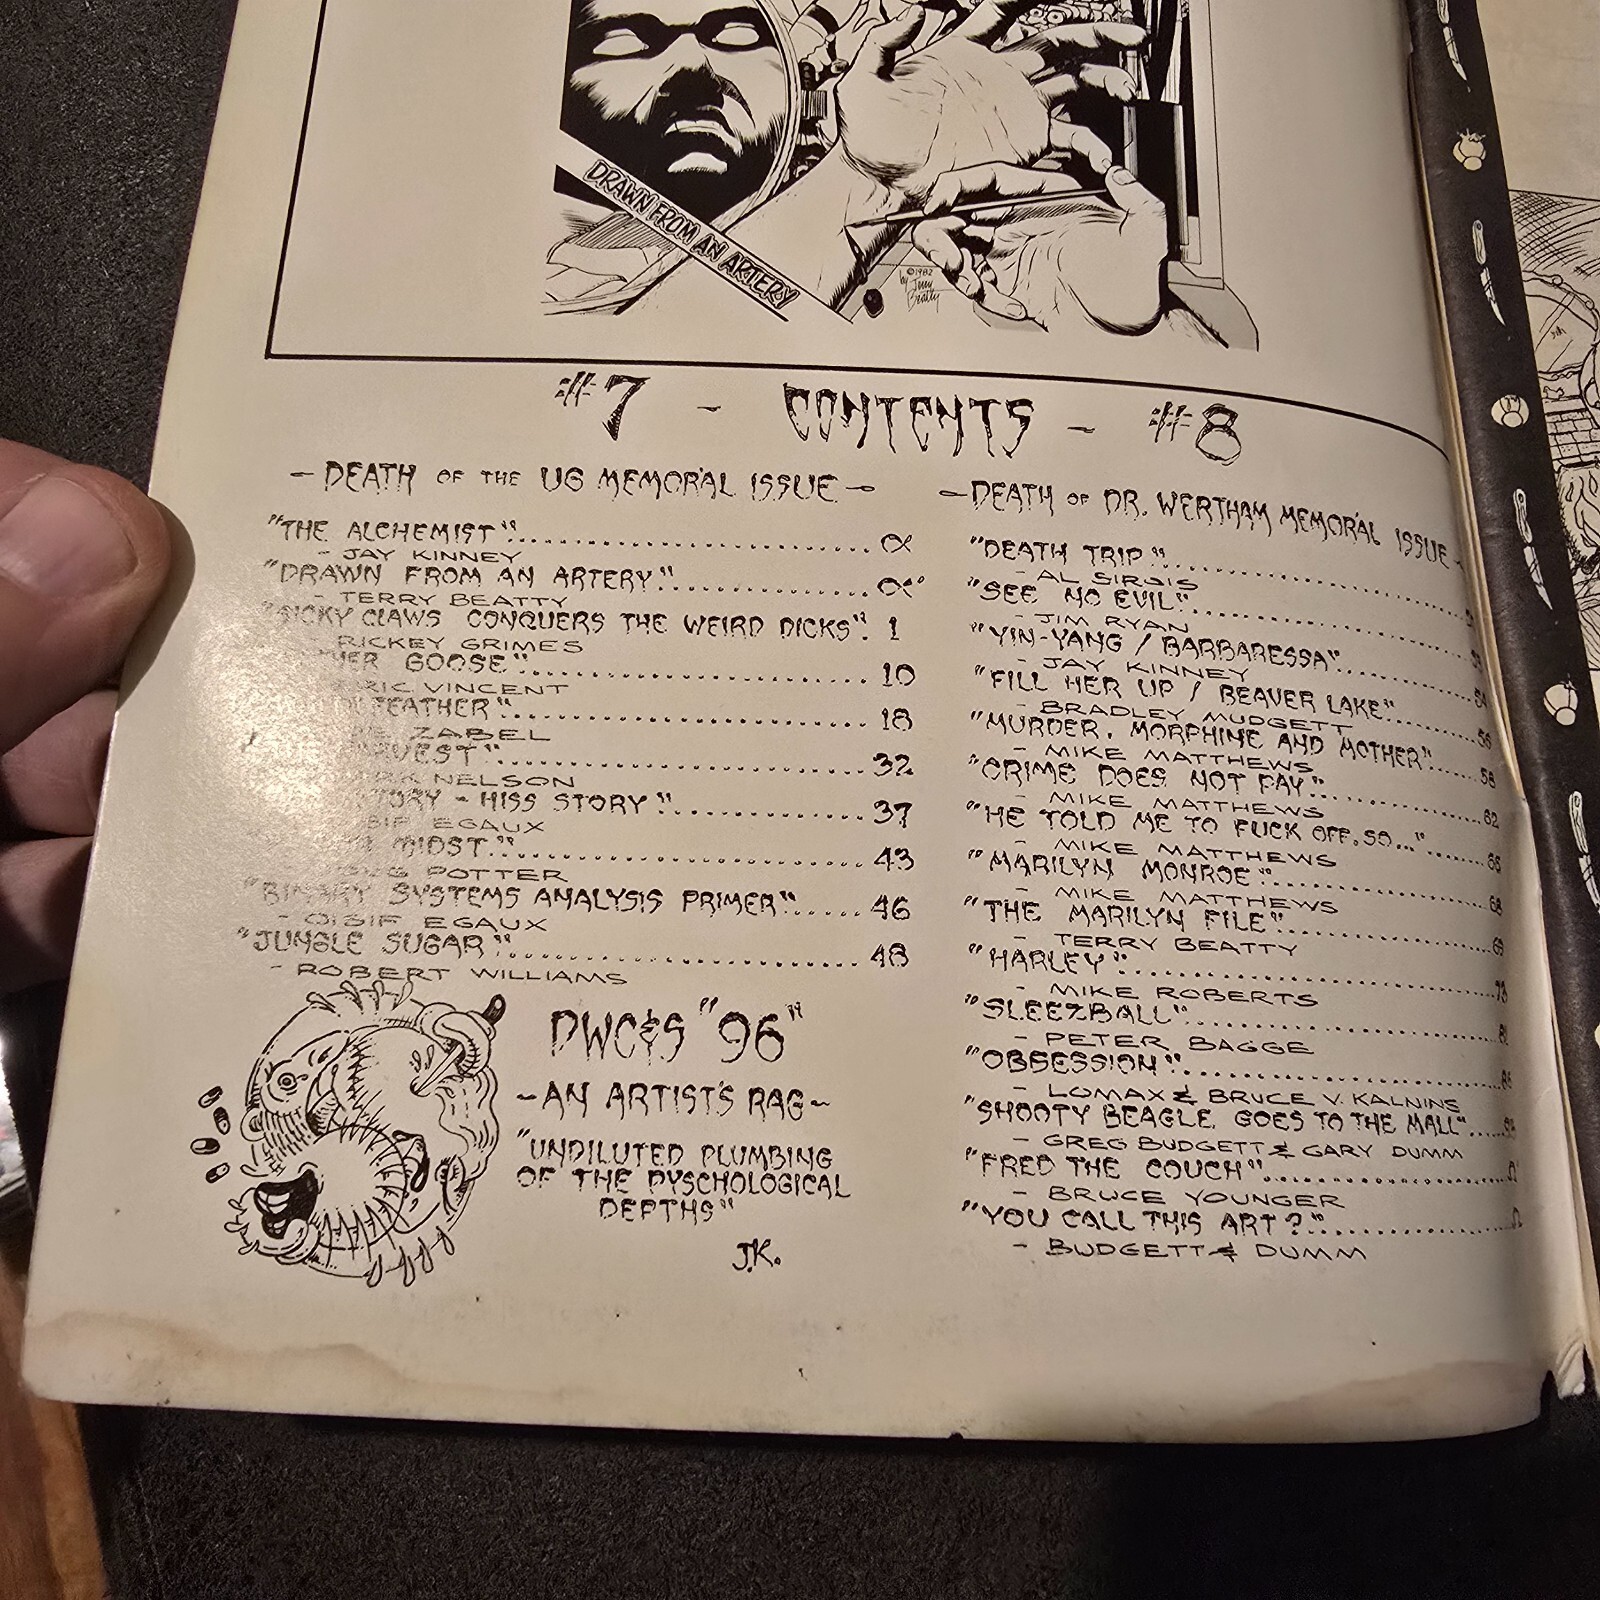 DRAWN FROM AN ARTERY
©1982
by Terry
Beatty
#7 - CONTENTS - #8
- DEATH OF THE UG MEMOR'AL ISSUE -
"THE ALCHEMIST" α
- JAY KINNEY
"DRAWN FROM AN ARTERY"
- TERRY BEATTY
CLAWS CONQUERS THE WEIRD DICKS". 1
RICKEY GRIMES
GOOSE" 10
VINCENT
18
ZABEL
32
NELSON
- HISS STORY" 37
EGAUX
MIDST" 43
POTTER
"BINARY SYSTEMS ANALYSIS PRIMER" 46
- OISIF EGAUX
"JUNGLE SUGAR" 48
- ROBERT WILLIAMS
DWC&S "96"
- AN ARTIST'S RAG -
"UNDILUTED PLUMBING
OF THE DYSCHOLOGICAL
DEPTHS"
J.K.
- DEATH OF DR. WERTHAM MEMOR'AL ISSUE -
"DEATH TRIP"
- AL SIROIS
"SEE NO EVIL"
- JIM RYAN
"YIN-YANG / BARBARESSA"
- JAY KINNEY
"FILL HER UP / BEAVER LAKE" 54
- BRADLEY MUDGETT
"MURDER, MORPHINE AND MOTHER" 56
- MIKE MATTHEWS
"CRIME DOES NOT PAY" 58
- MIKE MATTHEWS
"HE TOLD ME TO FUCK OFF, SO..." 62
- MIKE MATTHEWS
"MARILYN MONROE" 65
- MIKE MATTHEWS
"THE MARILYN FILE" 68
- TERRY BEATTY
"HARLEY" 69
- MIKE ROBERTS
"SLEEZBALL"
- PETER BAGGE
"OBSESSION"
- LOMAX & BRUCE V. KALNINS
"SHOOTY BEAGLE GOES TO THE MALL"
- GREG BUDGETT & GARY DUMM
"FRED THE COUCH" Ω'
- BRUCE YOUNGER
"YOU CALL THIS ART?" Ω
- BUDGETT & DUMM